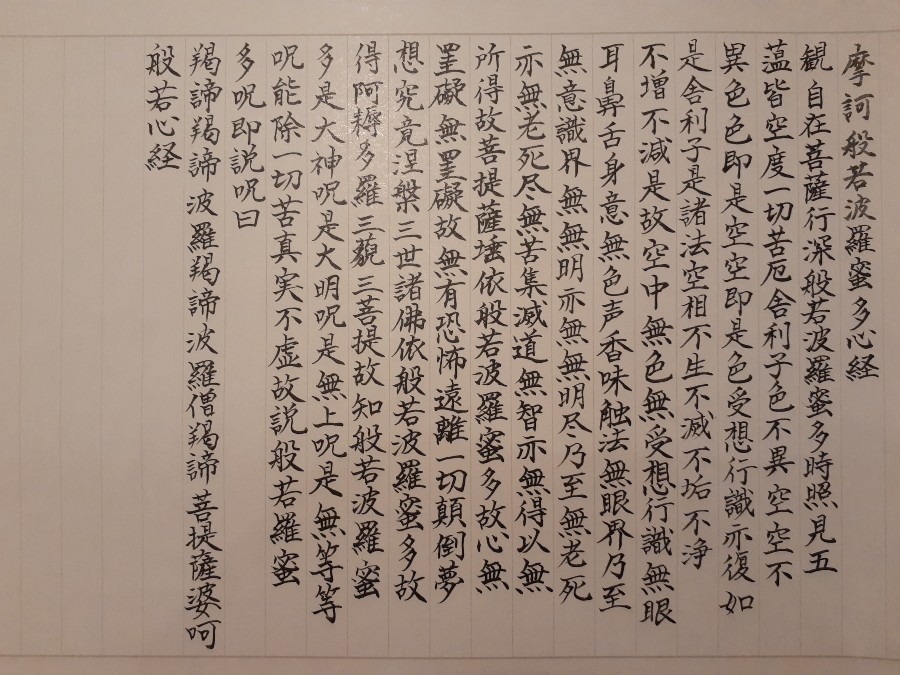 摩訶般若波羅蜜多心経
観自在菩薩行深般若波羅蜜多時照見五
薀皆空度一切苦厄舎利子色不異空空不
異色色即是空空即是色受想行識亦復如
是舎利子是諸法空相不生不滅不垢不浄
不増不減是故空中無色無受想行識無眼
耳鼻舌身意無色声香味触法無眼界乃至
無意識界無無明亦無無明尽乃至無老死
亦無老死尽無苦集滅道無智亦無得以無
所得故菩提薩埵依般若波羅蜜多故心無
罣礙無罣礙故無有恐怖遠離一切顛倒夢
想究竟涅槃三世諸佛依般若波羅蜜多故
得阿耨多羅三藐三菩提故知般若波羅蜜
多是大神呪是大明呪是無上呪是無等等
呪能除一切苦真実不虚故説般若羅蜜
多呪即説呪曰
羯諦羯諦波羅羯諦波羅僧羯諦菩提薩婆呵
般若心経